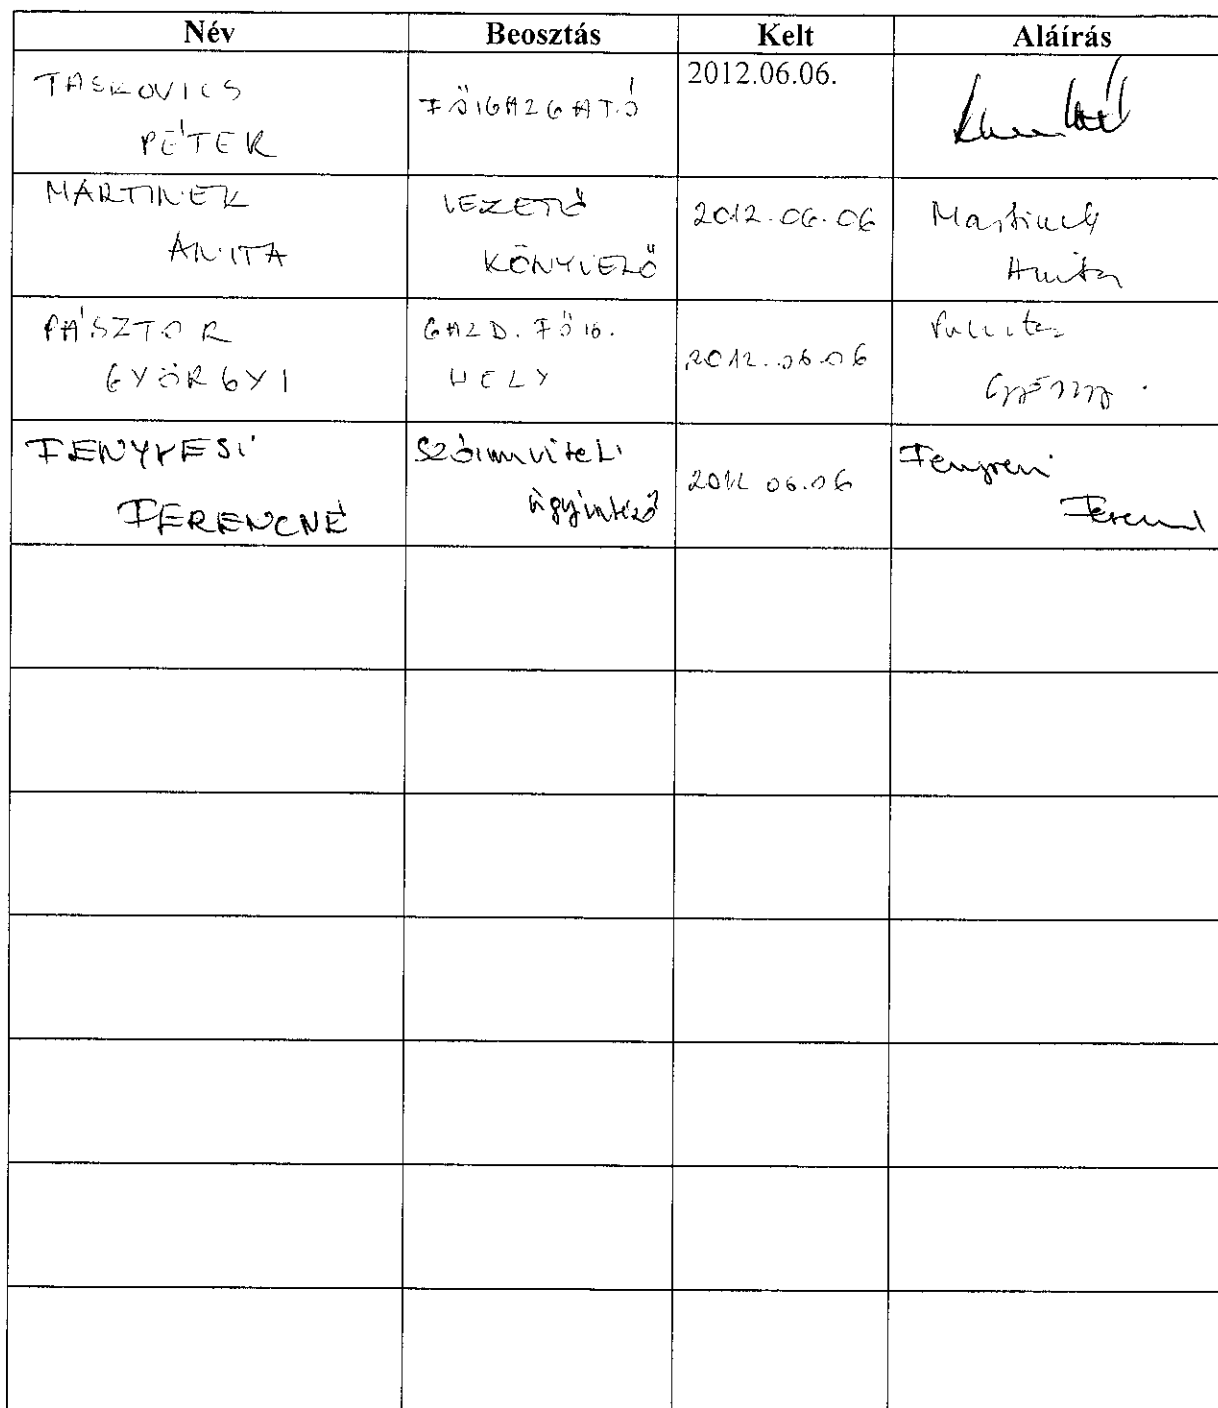 Név Beosztás Kelt Aláírás
TASKOVICS
PÉTER
FŐIGAZGATÓ
2012.06.06.
MARTINEK
ANITA
VEZETŐ
KÖNYVELŐ
2012.06.06
Martinek
Anita
PÁSZTOR
GYÖRGYI
GAZD. FŐIG.
HELY
2012.06.06
FENYVESI
FERENCNÉ
Számviteli
ügyintéző
2012 06.06
Fenyvesi